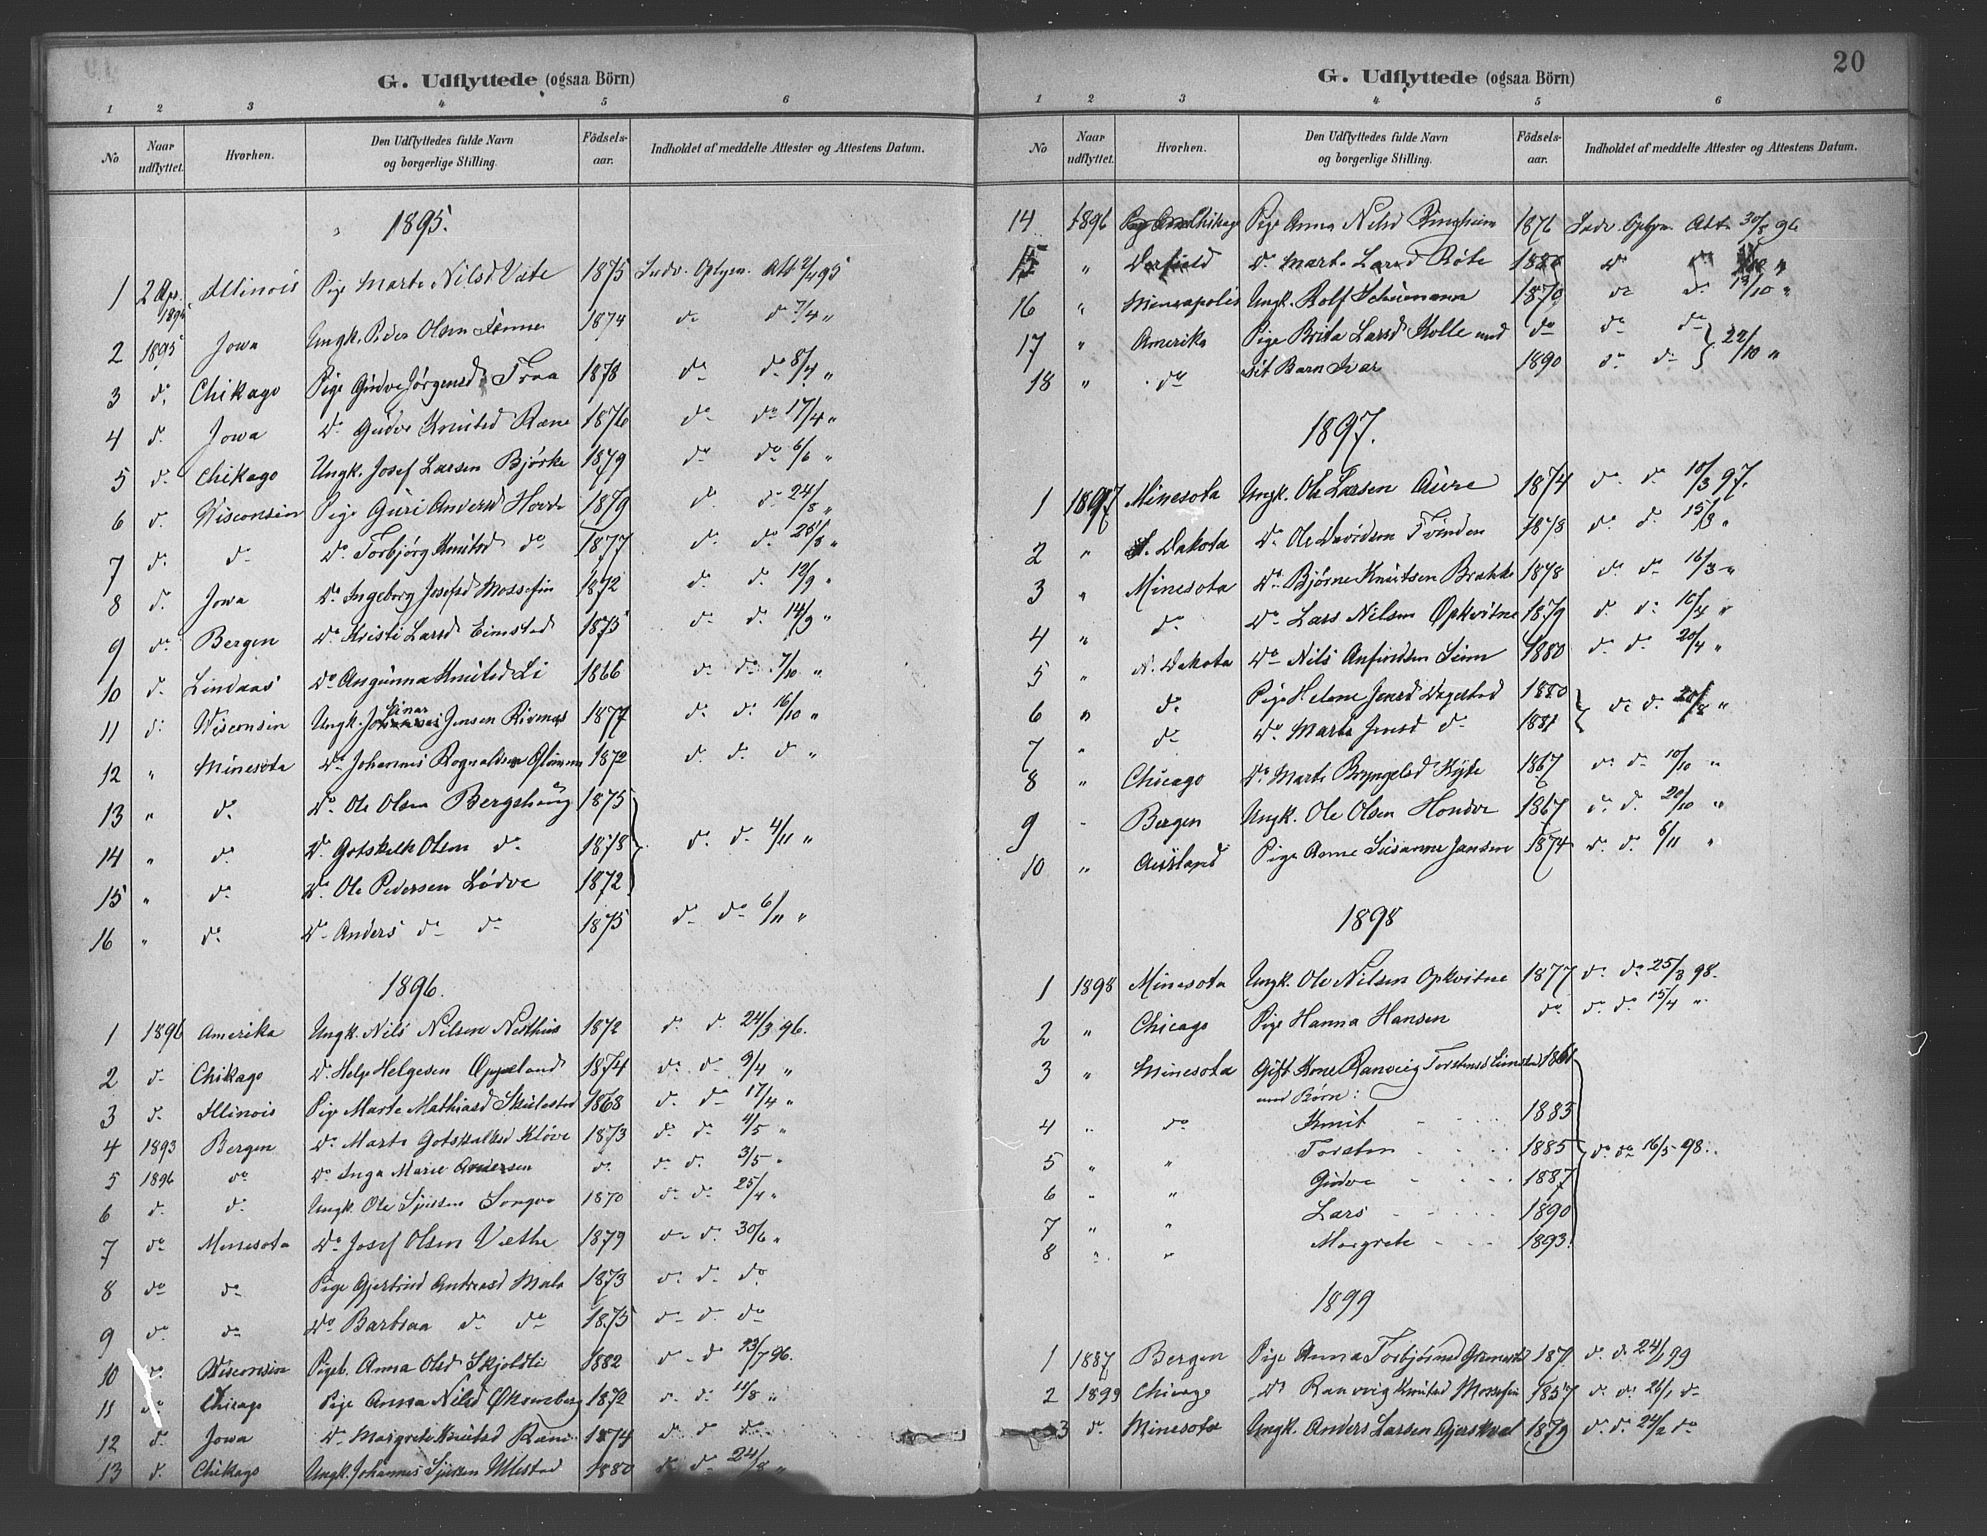 G. Udflyttede (ogsaa Börn)
1 2 3 4 5 6
No Naar udflyttet. Hvorhen. Den Udflyttedes fulde Navn og borgerlige Stilling. Födsels-aar. Indholdet af meddelte Attester og Attestens Datum.
1895.
1 2 Apr. 1895 Illinois Pige Marta Nilsd Væte 1875 Indv. Oplysn. Att 2/4 95
2 1895 Jowa Ungk. Peder Olsen 1874 do do 7/4 "
3 do Chikago Pige Gudve Jørgensd Traa 1878 do do 8/4 "
4 do Jowa Do Gudve Knutsd Ræne 1876 do do 17/4 "
5 do Chikago Ungk. Josef Larsen Bjørke 1879 do do 6/6 "
6 do Wisconsin Pige Guri Andersd Hovde 1879 do do 24/8 "
7 do do Do Torbjørg Knutsd do 1877 do do 25/8 "
8 do Jowa Do Ingeborg Josefsd Mossefin 1872 do do 12/9 "
9 do Bergen Do Kristi Larsd Eimstad 1875 do do 14/9 "
10 do Lindaas Do Angunna Knutsd Li 1866 do do 7/10 "
11 do Wisconsin Ungk. Einar Jensen Rivenæs 1877 do do 16/10 "
12 " Minesota Do Johannes Rognaldsen 1872 do do do "
13 " do Do Ole Olsen Bergshaug 1875
14 " do Do Gotskalk Olsen do 1878 do do 4/11 "
15 " do Do Ole Pedersen Lødve 1872
16 " do Do Anders do do 1875 do do 6/11 "
1896.
1 1896 Amerika Ungk. Nils Nilsen Nesthus 1872 do do 24/3 96.
2 do Chikago Do Helge Helgesen Oppeland 1874 do do 9/4 "
3 do Illinois Pige Marta Mathiasd Skulestad 1868 do do 17/4 "
4 1893 Bergen Do Marta Gotskalksd Kløve 1873 do do 4/5 "
5 1896 do Do Inga Marie Andersen do do do 3/5 "
6 do do Ungk. Ole Sjursen Songve 1870 do do 25/4 "
7 do Menesota Do Josef Olsen Væthe 1879 do do 30/6 "
8 do do Pige Gjertrud Andreasd Mala 1873 do do do
9 do do Do Barbraa do do 1875 do do do
10 do Wisconsin Pigeb. Anna Olsd Skjeldli 1882 do do 23/7 96.
11 do Chicago Pige Anna Nilsd 1872 do do 11/8 "
12 do Jowa Do Margreta Knutsd Ræne 1874 do do do
13 do Chikago Ungk. Johannes Sjursen Ullestad 1880 do do 24/8 "
G. Udflyttede (ogsaa Börn)
20
1 2 3 4 5 6
No Naar udflyttet. Hvorhen. Den Udflyttedes fulde Navn og borgerlige Stilling. Födsels-aar. Indholdet af meddelte Attester og Attestens Datum.
14 1896 Chikago Pige Anna Nilsd Ringheim 1876 Indv. Oplysn. Att. 30/8 96
15 " Derfield Do Marta Larsd Røte 1880 do do "
16 " Mineapolis Ungk. Rolf Schumann 1870 do do 13/10 "
17 " Amerika Pige Brita Larsd Kolle med do do do
18 " do sit Barn Ivar 1890 do do 22/10 "
1897.
1 1897 Minesota Ungk. Ole Larsen Aure 1874 do do 10/3 97.
2 " Dakota Do Ole Davidsen Tvinden 1878 do do 15/3 "
3 " Minesota Do Bjørne Knutsen Brekke 1878 do do 16/3 "
4 " do Do Lars Nilsen Opkvitne 1879 do do 10/4 "
5 " N. Dakota Do Nils Anfindsen Seim 1880 do do 20/4 "
6 " do Pige Helene Jensd Dagestad 1880
7 " do Do Marta Jensd do 1881 do do 20/8 "
8 " Chicago Do Marta Bryngelsd Kyte 1867 do do 10/10 "
9 " Bergen Ungk. Ole Olsen Hondve 1867 do do 20/10 "
10 " Aurland Pige Anne Susanne Jansen 1874 do do 6/11 "
1898
1 1898 Minesota Ungk. Ole Nilsen Opkvitne 1877 do do 25/3 98.
2 " Chicago Pige Hanna Hansen do do do 15/4 "
3 " Minesota Gift Kone Ranveig Torstensd 1861
med Børn:
4 " do Knut 1883
5 " " Torsten 1885 do do 16/5 98.
6 " " Gudve 1887
7 " " Lars 1890
8 " " Margrete 1893.
1899
1 1887 Bergen Pige Anna Torbjørnsd 187 do do 24/1 99
2 1899 Chicago Do Ranveig Knutsd Mossefin 1857 do do 26/1 do
3 do Minesota Ungk. Anders Larsen Gjerskval 1879 do do 24/2 do